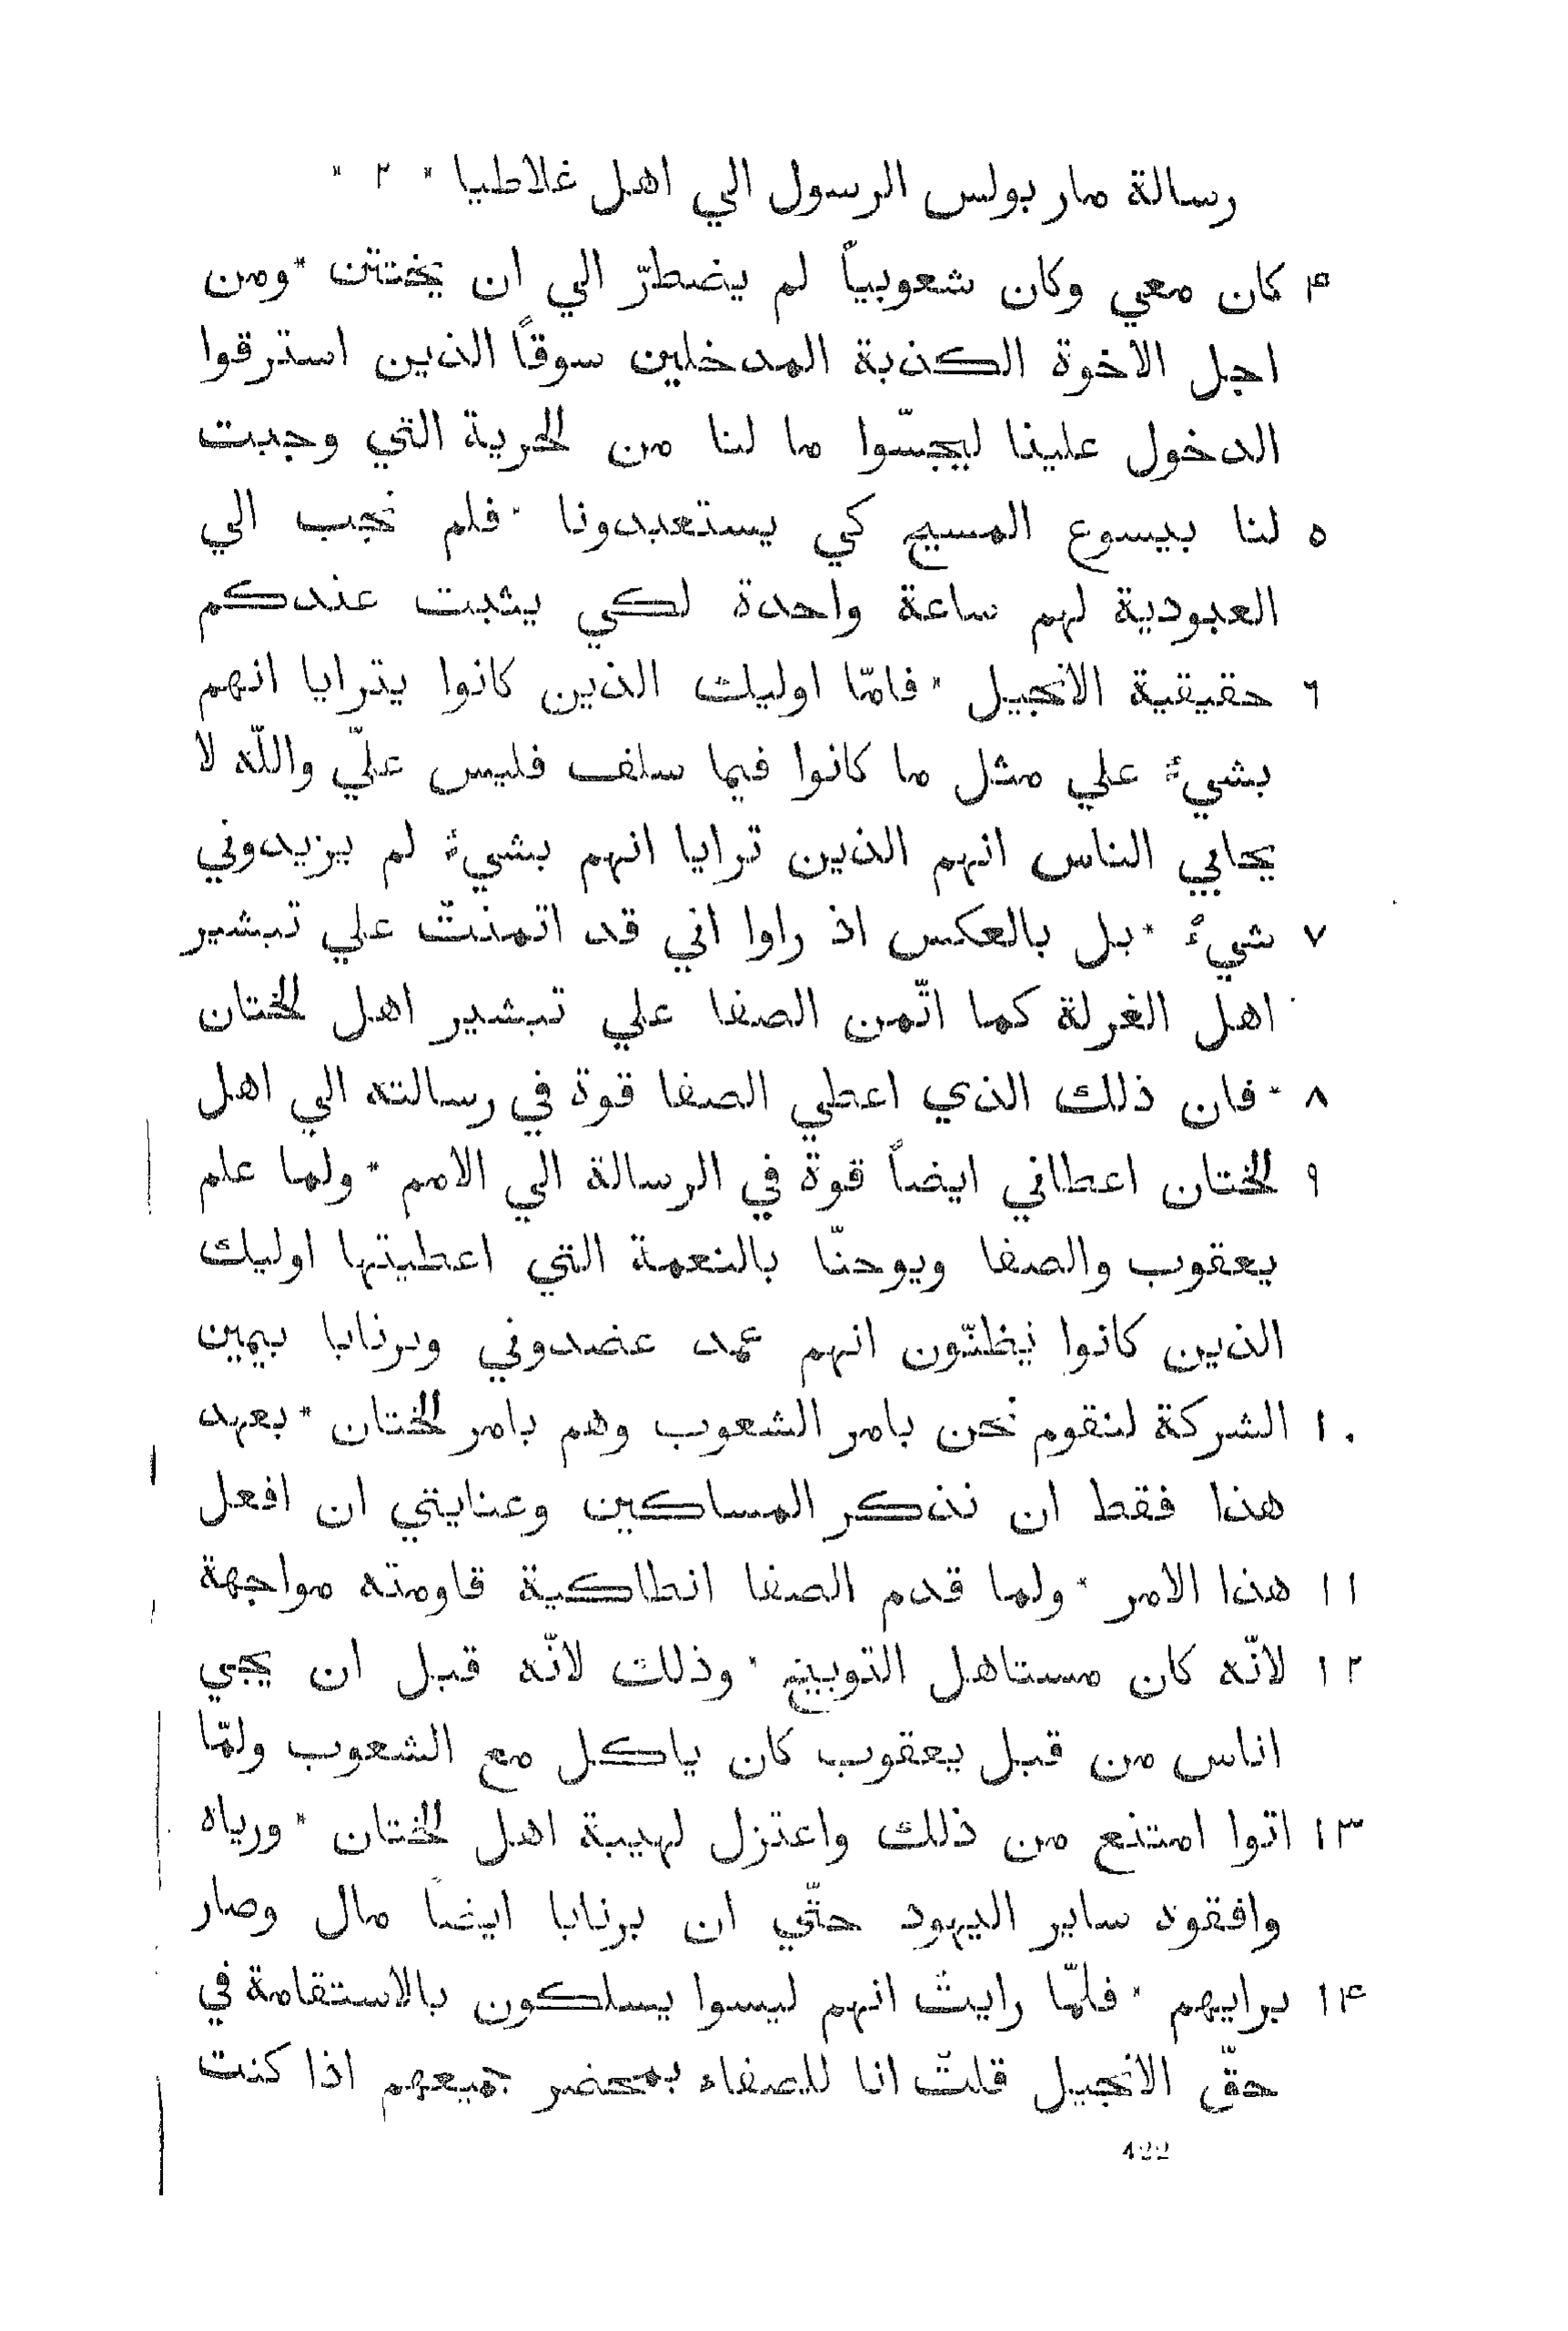 رسالة مار بولس الرسول الي اهل غلاطيا * ٢ *
۴ كان معي وكان شعوبياً لم يضطرّ الي ان يختتن * ومن
اجل الاخوة الكذبة المدخلين سوقاً الذين استرقوا
الدخول علينا ليجسّوا ما لنا من الحرية التي وجبت
٥ لنا بيسوع المسيح كي يستعبدونا * فلم نجب الي
العبودية لهم ساعة واحدة لكي يثبت عندكم
٦ حقيقية الانجيل * فامّا اوليك الذين كانوا يترايا انهم
بشيءٌ علي مثل ما كانوا فيما سلف فليس عليّ واللّه لا
يحابي الناس انهم الذين ترايا انهم بشيءٌ لم يزيدوني
٧ شيءٌ * بل بالعكس اذ راوا اني قد اتمنتُ علي تبشير
اهل الغرلة كما اتّمن الصفا علي تبشير اهل الختان
٨ * فان ذلك الذي اعطي الصفا قوة في رسالته الي اهل
٩ الختان اعطاني ايضاً قوة في الرسالة الي الامم * ولما علم
يعقوب والصفا ويوحنّا بالنعمة التي اعطيتها اوليك
الذين كانوا يظنّون انهم عمد عضدوني وبرنابا بيمين
١٠ الشركة لنقوم نحن بامر الشعوب وهم بامر الختان * بعهد
هذا فقط ان نذكر المساكين وعنايتي ان افعل
١١ هذا الامر * ولما قدم الصفا انطاكية قاومته مواجهة
١٢ لانّه كان مستاهل التوبيخ * وذلك لانّه قبل ان يجي
اناس من قبل يعقوب كان ياكل مع الشعوب ولمّا
١٣ اتوا امتنع من ذلك واعتزل لهيبة اهل الختان * ورياه
وافقوه ساير اليهود حتّي ان برنابا ايضاً مال وصار
١۴ برابيهم * فلمّا رايتُ انهم ليسوا يسلكون بالاستقامة في
حقّ الانجيل قلتُ انا للصفاء بمحضر جميعهم اذا كنت
422